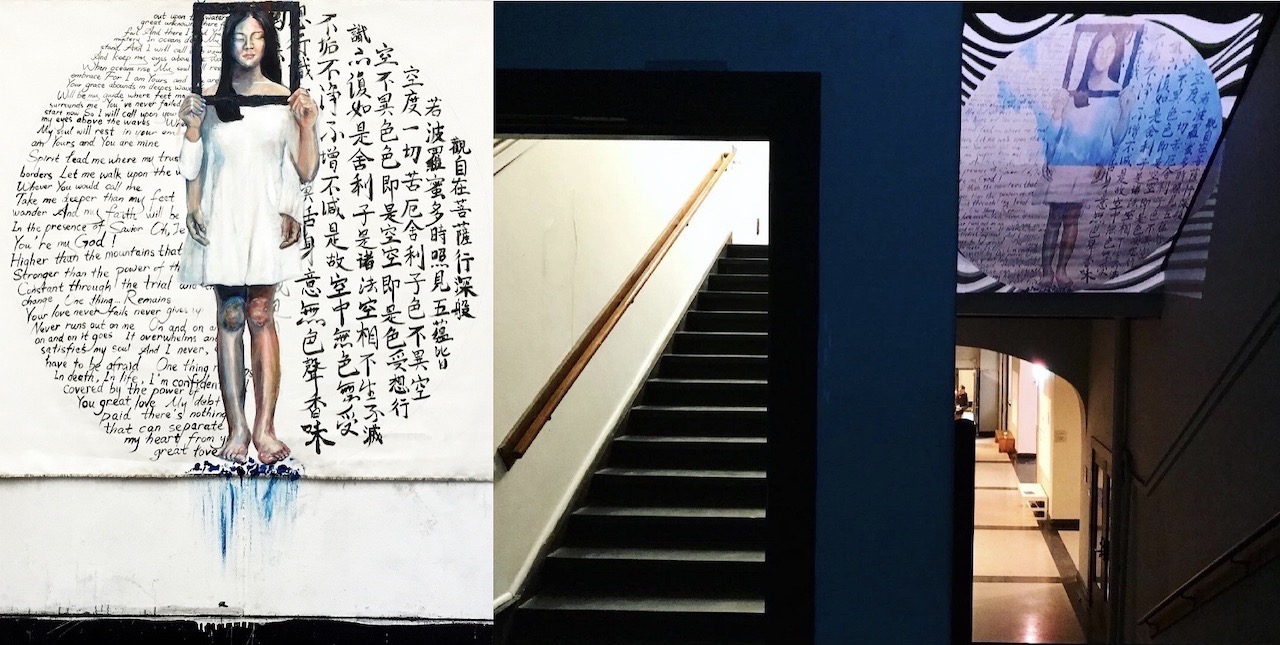 out upon the water
great unknown where f
fail And there I find You
mystery In oceans de
stand And I will call
And keep my eyes above
When oceans rise My soul
embrace For I am Yours and
Your grace abounds in deepest wa
Will be my guide where feet m
surrounds me You've never failed
start now So I will call upon you
my eyes above the waves Wh
My soul will rest in your em
am Yours and You are mine
Spirit lead me where my trust
borders Let me walk upon the w
Whever You would call me
Take me deeper than my feet
wander And my faith will be
In the presence of Savior Oh, Je
You're my God!
Higher than the mountains that
Stronger than the power of th
Constant through the trial and
change One thing... Remains
Your love never fails never gives u
Never runs out on me On and on a
on and on it goes It overwhelms and
satisfies my soul And I never,
have to be afraid One thing r
In death, In life, I'm confident
covered by the power of
You great love My debt
paid there's nothing
that can separate
my heart from y
great love
觀自在菩薩行深般
若波羅蜜多時照見五蘊皆
空度一切苦厄舍利子色不異空
空不異色色即是空空即是色受想行
識亦復如是舍利子是諸法空相不生不滅
不垢不淨不增不減是故空中無色無受
想行識 舌身意無色聲香味